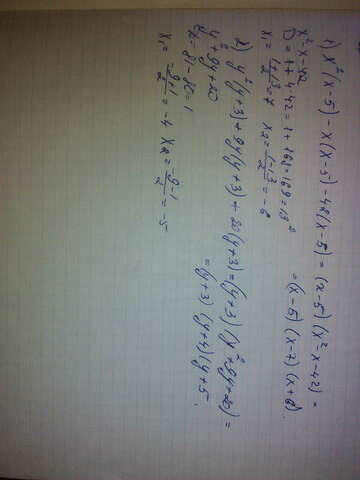 1) x²(x-5) - x(x-5) - 42(x-5) = (x-5)(x²-x-42) =
x²-x-42 = (x-5)(x-7)(x+6).
D = 1+4·42 = 1+168 = 169 = 13²
x₁ = (1+13)/2 = 7 x₂ = (1-13)/2 = -6
2) y²(y+3) + 9y(y+3) + 20(y+3) = (y+3)(y²+9y+20) =
y²+9y+20 = (y+3)(y+4)(y+5.
D = 81-80 = 1
x₁ = (-9+1)/2 = -4 x₂ = (-9-1)/2 = -5